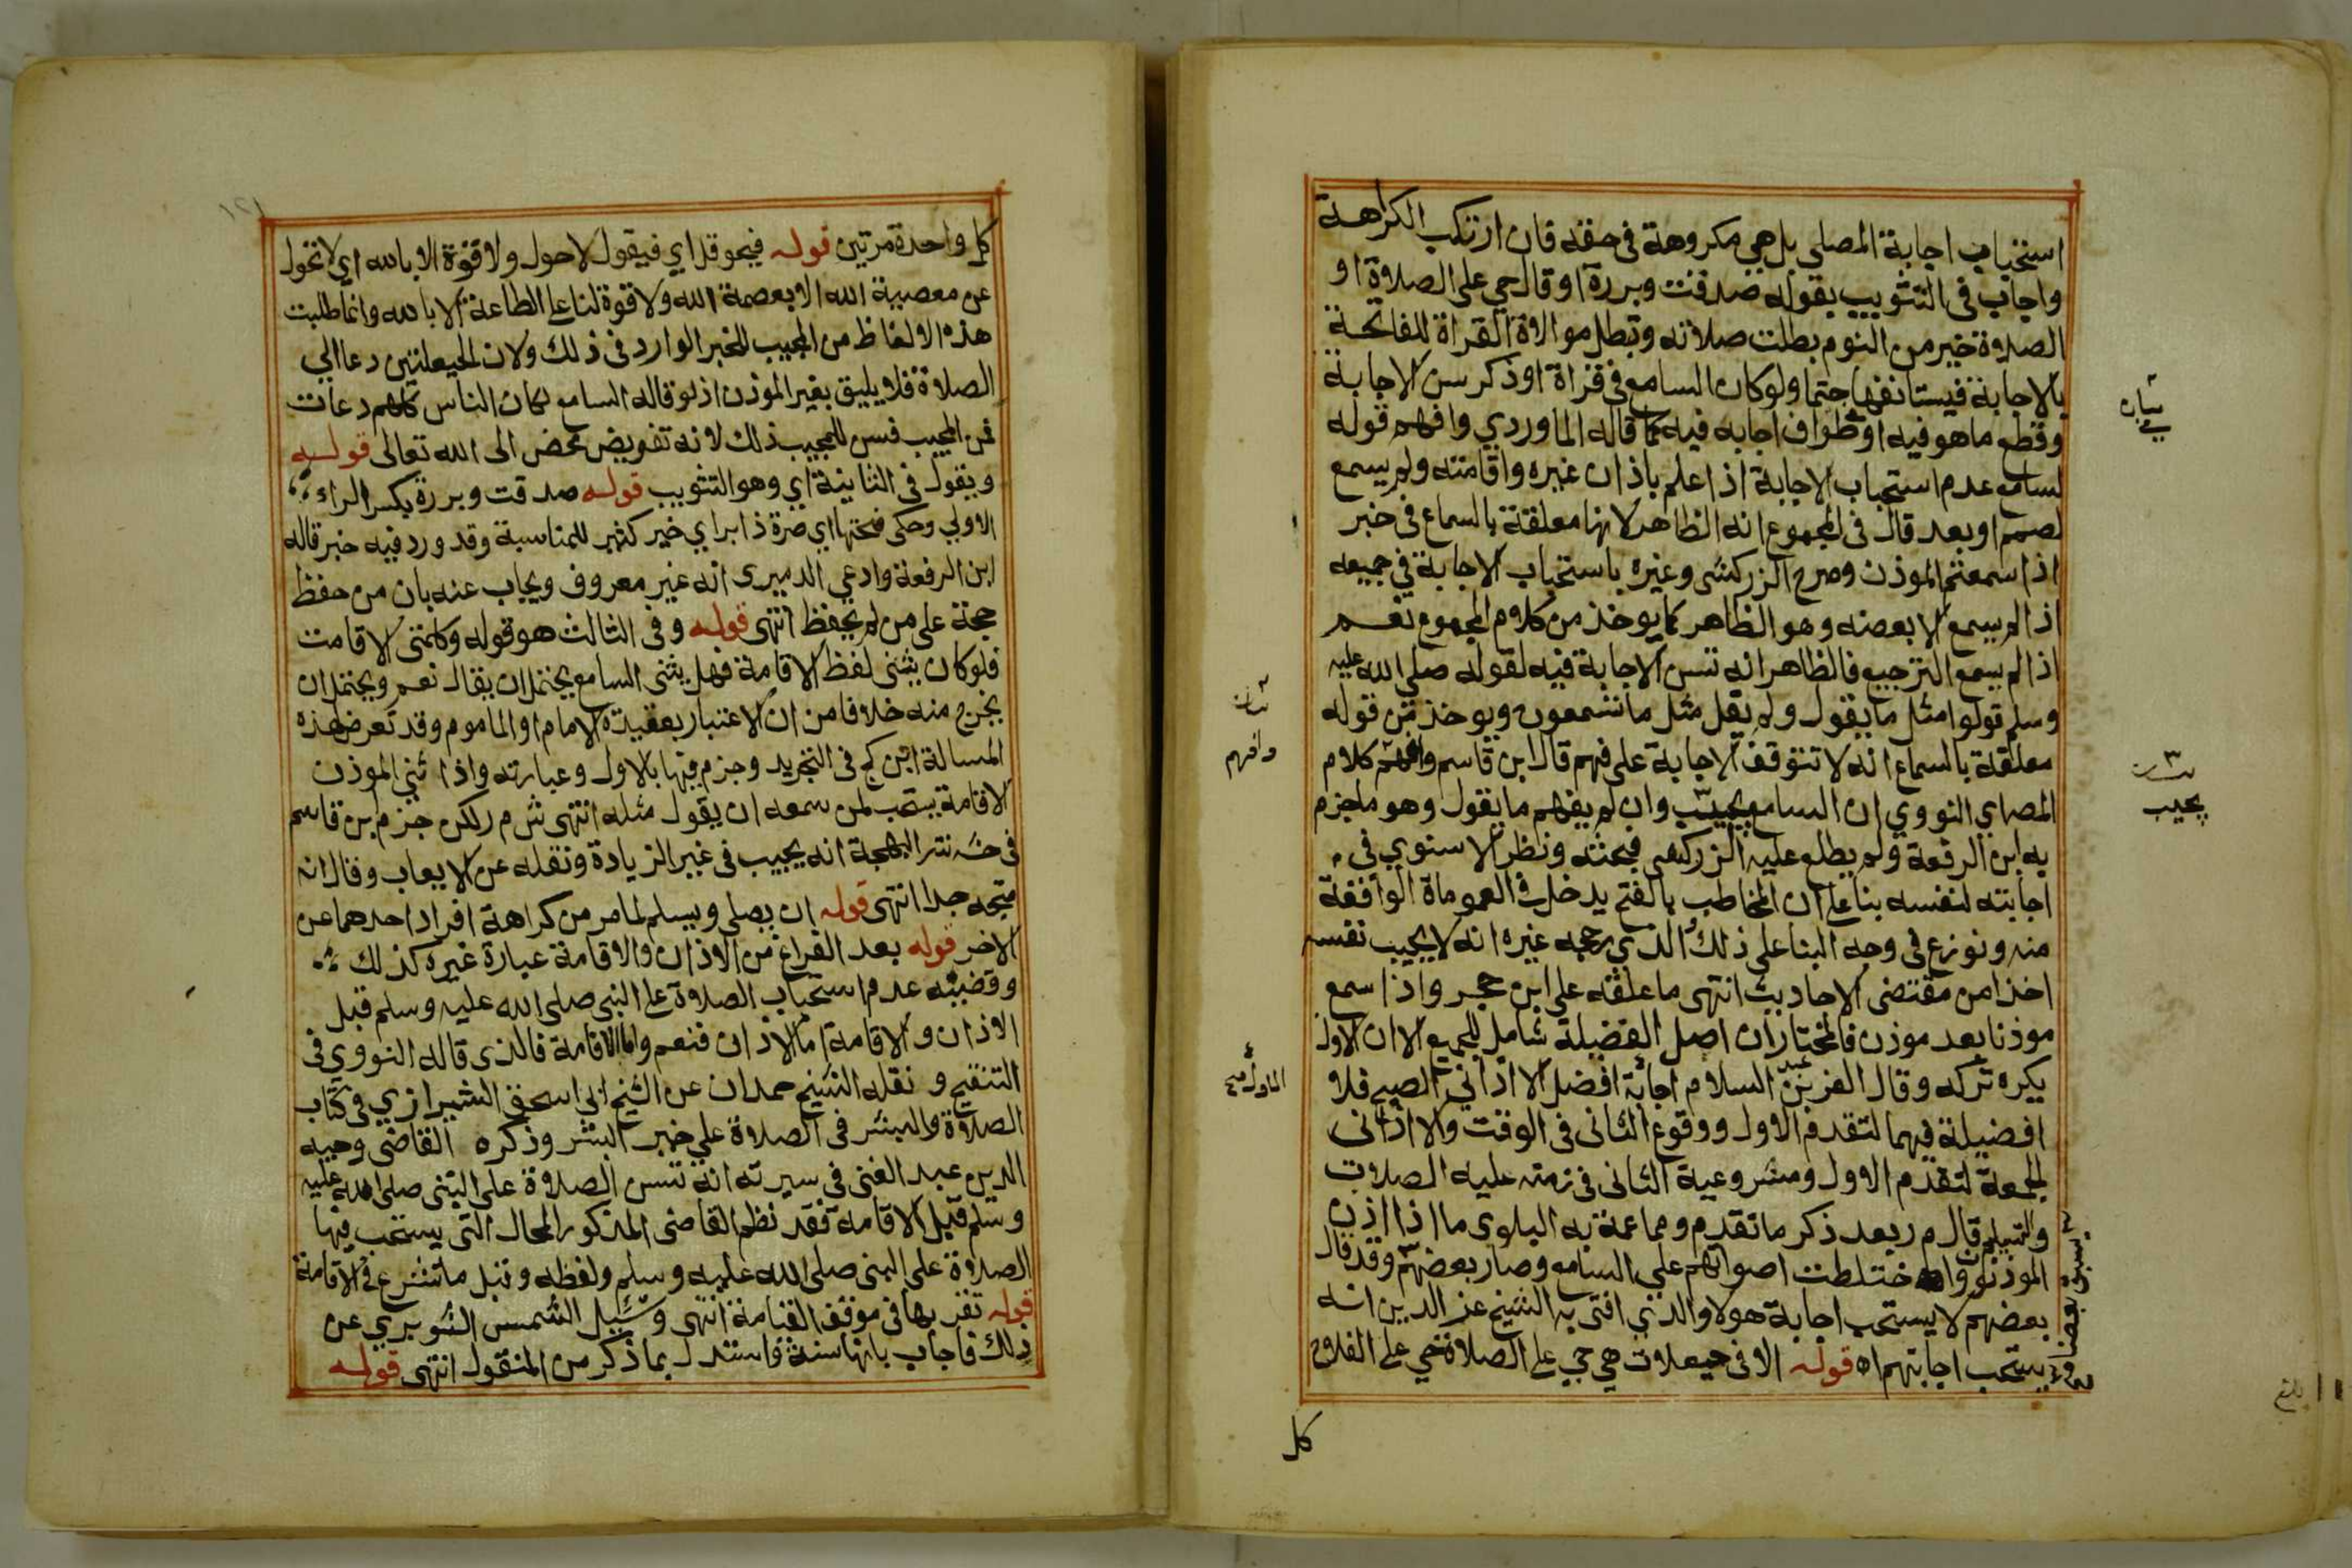 استحباب اجابة المصلي بل هي مكروهة في حقه فان ارتكب الكراهة
واجاب في التثويب بقوله صدقت وبررة او قال حي على الصلاة او
الصلاة خير من النوم بطلت صلاته وتبطل موالاة القراة للفاتحة
بالاجابة فيستانفها حتما ولو كان السامع في قراة او ذكر سن الاجابة
وقطع ما هو فيه او طواف اجابه فيه كما قاله الماوردي وافهم قوله
لسامع عدم استحباب الاجابة اذا علم باذان غيره واقامته ولم يسمع
لصمم او بعد قال في المجموع انه الظاهر لانها معلقة بالسماع في خبر
اذا سمعتم الموذن وصرح الزركشى وغيره باستحباب الاجابة في جميعه
اذا لم يسمع الا بعضه وهو الظاهر كما يوخذ من كلام المجموع نعم
اذا لم يسمع الترجيع فالظاهر انه تسن الاجابة فيه لقوله صلى الله عليه
وسلم قولوا مثل ما يقول ولم يقل مثل ما تسمعون ويوخذ من قوله
معلقة بالسماع انه لا تتوقف الاجابة على فهم قال ابن قاسم وافهم كلام
المص اي النووي ان السامع يجيب وان لم يفهم ما يقول وهو ما جزم
به ابن الرفعة ولم يطلع عليه الزركشى فبحثه ونظر الاسنوي في
اجابته لنفسه بنا على ان المخاطب بالفتح يدخل في العموماة الوافقة
منه ونوزع في وجه البنا على ذلك والذي رجحه غيره انه لا يجيب نفسه
اخذا من مقتضى الاحاديث انتهى ما علقته على ابن حجر واذا سمع
موذنا بعد موذن فالمختار ان اصل الفضيلة شامل للجميع الا ان الاول
يكره تركه وقال العز بن عبد السلام اجابة افضل الا اذاني الصبح فلا
افضيلة فيهما لتقدم الاول ووقوع الثانى في الوقت والا اذانى
الجمعة لتقدم الاول ومشروعية الثانى في زمنه عليه الصلات
والتسليم قال م ر بعد ذكر ما تقدم ومما عمة به البلوى ما اذا اذن
الموذنون واختلطت اصواتهم على السامع وصار بعضهم وقد قال
بعضهم لا يستحب اجابة هولا والذي افتى به الشيخ عز الدين انه
يستحب اجابتهم اه قوله الا في حيعلات هي حي على الصلاة حي على الفلاح
كل
بيان
بيان
وافهم
بيان
يجيب
يسبق بعضا
بلغ
١٢١
كل واحدة مرتين قوله فيحوقل اي فيقول لا حول ولا قوة الا بالله اي لا تحول
عن معصية الله الا بعصمة الله ولا قوة لنا على الطاعة الا بالله وانما طلبت
هذه الالفاظ من المجيب للخبر الوارد في ذلك ولان الحيعلتين دعا الي
الصلاة فلا يليق بغير الموذن اذ لو قاله السامع لكان الناس كلهم دعات
فمن المجيب فسن للمجيب ذلك لانه تفويض محض الى الله تعالى قوله
ويقول في الثانية اي وهو التثويب قوله صدقت وبررة بكسر الراء
الاولي وحكى فتحها اي صرة ذا بر اي خير كثير للمناسبة وقد ورد فيه خبر قاله
ابن الرفعة وادعي الدميرى انه غير معروف ويجاب عنه بان من حفظ
حجة على من لم يحفظ انتهى قوله وفي الثالث هو قوله وكلمتى الاقامت
فلو كان يثنى لفظ الاقامة فهل يثنى السامع يحتمل ان يقال نعم ويحتمل ان
يخرج منه خلافا من ان الاعتبار بعقيدة الامام او الماموم وقد تعرض لهذه
المسالة ابن كج في التجريد وجزم فيها بالاول وعبارته واذا ثني الموذن
الاقامة يستحب لمن سمعه ان يقول مثله انتهى ش م ر لكن جزم بن قاسم
في حش نثر البهجة انه يجيب في غير الزيادة ونقله عن الايعاب وقال انه
متجه جدا انتهى قوله ان يصلي ويسلم لما مر من كراهة افراد احدهما عن
الاخر قوله بعد الفراغ من الاذان والاقامة عبارة غيره كذلك
وقضيته عدم استحباب الصلاة على النبي صلى الله عليه وسلم قبل
الاذان والاقامة اما الاذان فنعم واما الاقامة فالذى قاله النووي في
التنقيح ونقله الشيخ حمدان عن الشيخ ابي اسحق الشيرازي في كتاب
الصلاة والبشر في الصلاة علي خير البشر وذكره القاضى وجيه
الدين عبد الغنى في سيرته انه تسن الصلاة على النبى صلى الله عليه
وسلم قبل الاقامة فقد نظم القاضى المذكور المحال التى يستحب فيها
الصلاة على النبى صلى الله عليه وسلم ولفظه وقبل ما تشرع في الاقامة
قوله تقر بها في موقف القيامة انتهى وسئيل الشمس الشوبري عن
ذلك فاجاب بانها سنة واستدل بما ذكر من المنقول انتهى قوله